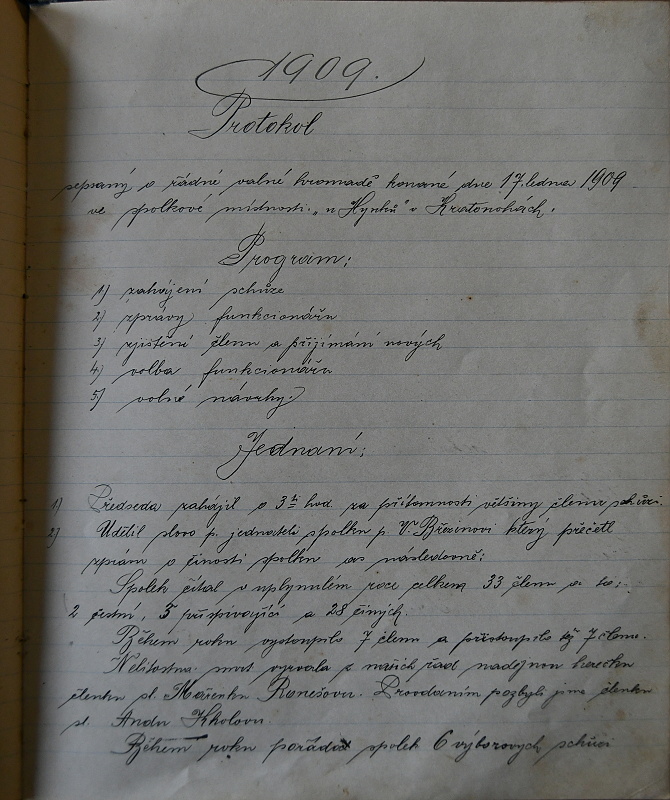 1909.
Protokol
sepsaný o řádné valné hromadě konané dne 17. ledna 1909
ve spolkové místnosti „u Hynků" v Kratonohách.
Program:
1) zahájení schůze
2) zprávy funkcionářů
3) zjištění členů a přijímání nových
4) volba funkcionářů
5) volné návrhy.
Jednání:
1) Předseda zahájil o 3 ti hod. za přítomnosti většiny členů schůzi.
2) Udělil slovo p. jednateli spolku p. V. Březinovi který přečetl
zprávu o činosti spolku as následovně:
Spolek čítal v uplynulém roce celkem 33 členů a to:
2 čestní, 3 přispívající a 28 činých.
Během roku vystoupilo 7 členů a přistoupilo též 7 členů.
Nelítostná smrt vyrvala z našich řad nadějnou herečku
členku sl. Mařenku. Provdáním pozbyli jsme členku
sl. Andu
Během roku pořádal spolek 6 výborových schůzí